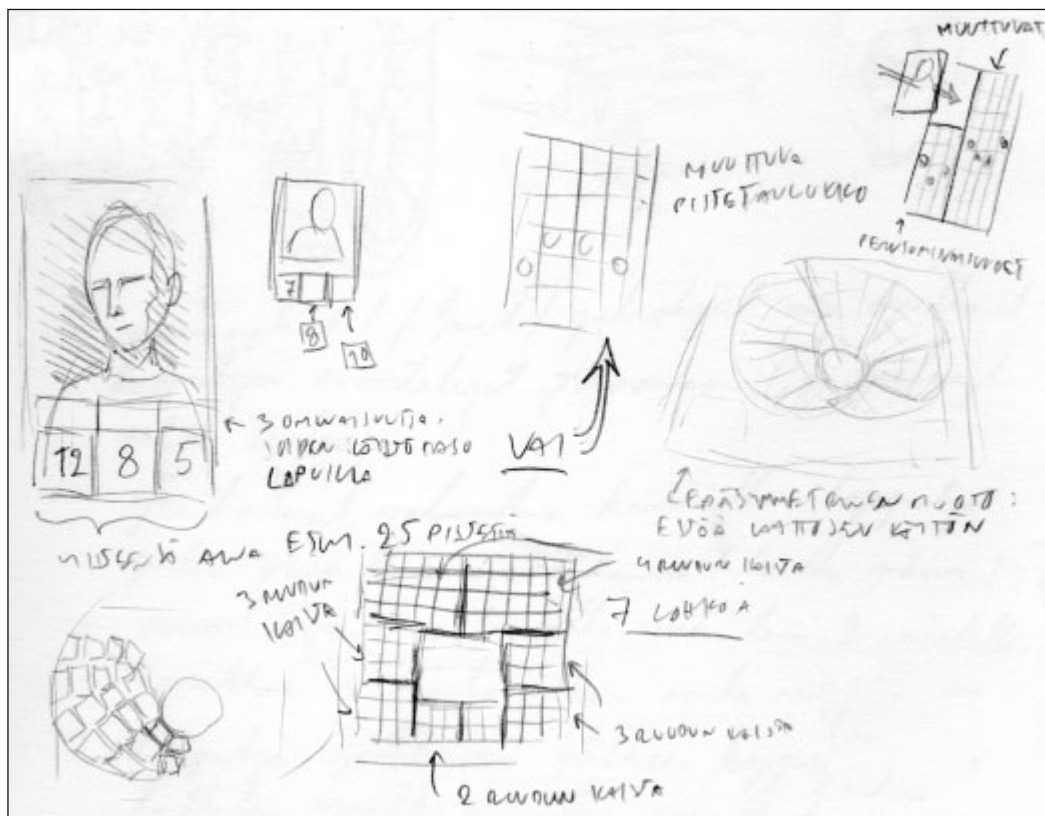 MUUTTUVAT
MUUTTUVA
PISTETAULUKKO
PERUSOMINAISUUDET
7
8
10
12 8 5
3 OMINAISUUTTA,
LAPUILLA
VAI
EPÄSYMMETRINEN MUOTO:
YHTEENSÄ AINA ESIM. 25 PISTETTÄ
4 RUUDUN KAISTA
3 RUUDUN
KAISTA
7 LOHKOA
3 RUUDUN KAISTA
2 RUUDUN KAISTA